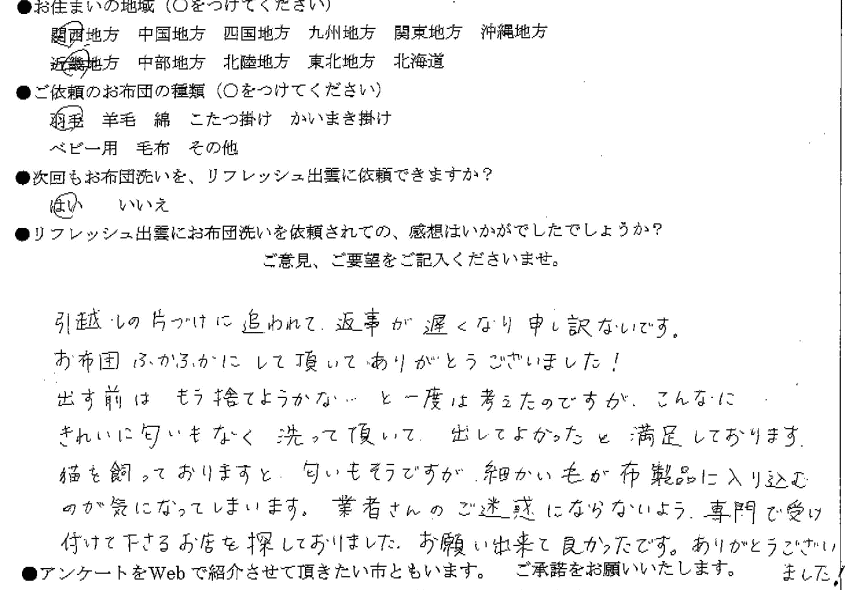 ●お住まいの地域（○をつけてください）
関西地方 中国地方 四国地方 九州地方 関東地方 沖縄地方
近畿地方 中部地方 北陸地方 東北地方 北海道
●ご依頼のお布団の種類（○をつけてください）
羽毛 羊毛 綿 こたつ掛け かいまき掛け
ベビー用 毛布 その他
●次回もお布団洗いを、リフレッシュ出雲に依頼できますか？
はい いいえ
●リフレッシュ出雲にお布団洗いを依頼されての、感想はいかがでしたでしょうか？
ご意見、ご要望をご記入くださいませ。
引越しの片づけに追われて、返事が遅くなり申し訳ないです。
お布団ふかふかにして頂いてありがとうございました！
出す前はもう捨てようかな… と一度は考えたのですが、こんなに
きれいに匂いもなく洗って頂いて、出してよかったと満足しております。
猫を飼っておりますと、匂いもそうですが、細かい毛が布製品に入り込む
のが気になってしまいます。業者さんのご迷惑にならないよう、専門で受け
付けて下さるお店を探しておりました。お願い出来て良かったです。ありがとうござい
ました！
●アンケートをWebで紹介させて頂きたい市ともいます。 ご承諾をお願いいたします。